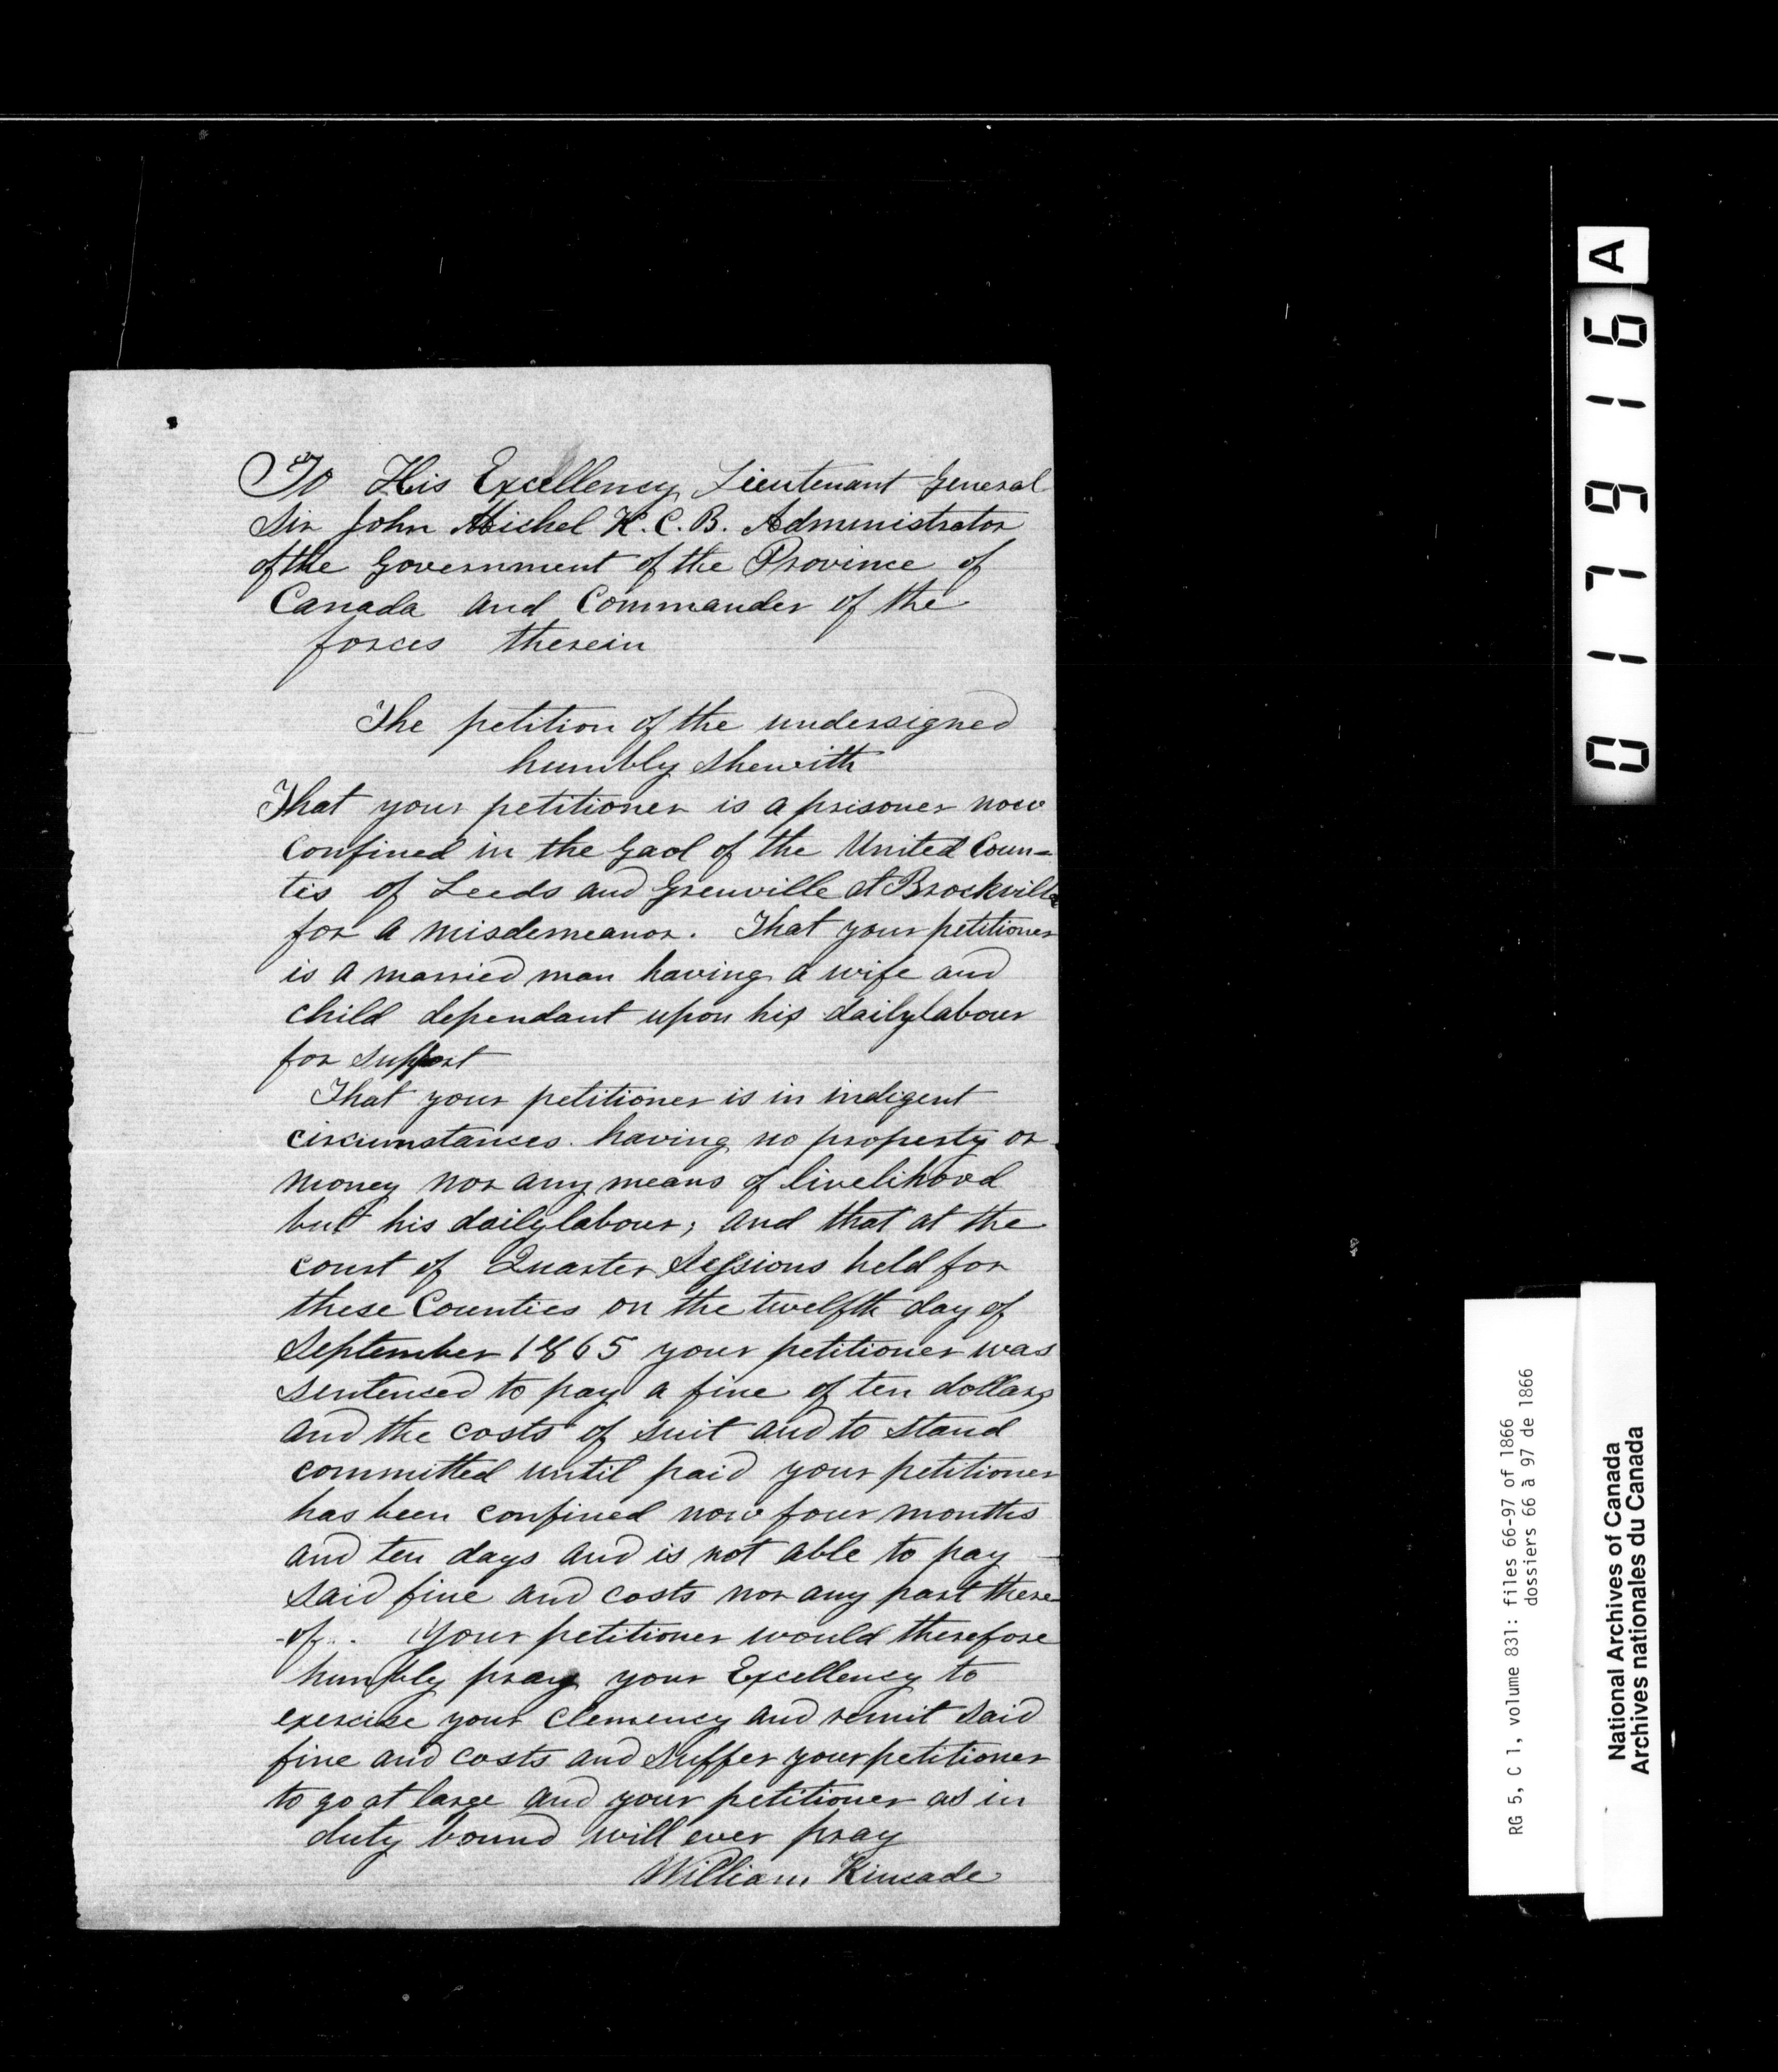 To His Excellency Lieutenant General
Sir John Michel K.C.B. Administrator
of the Government of the Province of
Canada and Commander of the
forces therein
The petition of the undersigned
humbly shewith
That your petitioner is a prisoner now
confined in the Gaol of the United Coun=
tis of Leeds and Grenville at Brockville
for a misdemeanor. That your petitioner
is a married man having a wife and
child dependant upon his daily labour
for support
That your petitioner is in indigent
circumstances having no property or
money nor any means of livelihood
but his daily labour; and that at the
court of Quarter Sessions held for
these Counties on the twelfth day of
September 1865 your petitioner was
sentensed to pay a fine of ten dollars
and the costs of suit and to stand
committed until paid your petitioner
has been confined now four months
and ten days and is not able to pay
said fine and costs nor any part there
-of. Your petitioner would therefore
humbly pray your Excellency to
exercise your clemency and remit said
fine and costs and suffer your petitioner
to go at large and your petitioner as in
duty bound will ever pray
William Kincade
A
017916
RG 5, C 1, volume 831: files 66-97 of 1866
dossiers 66 à 97 de 1866
National Archives of Canada
Archives nationales du Canada